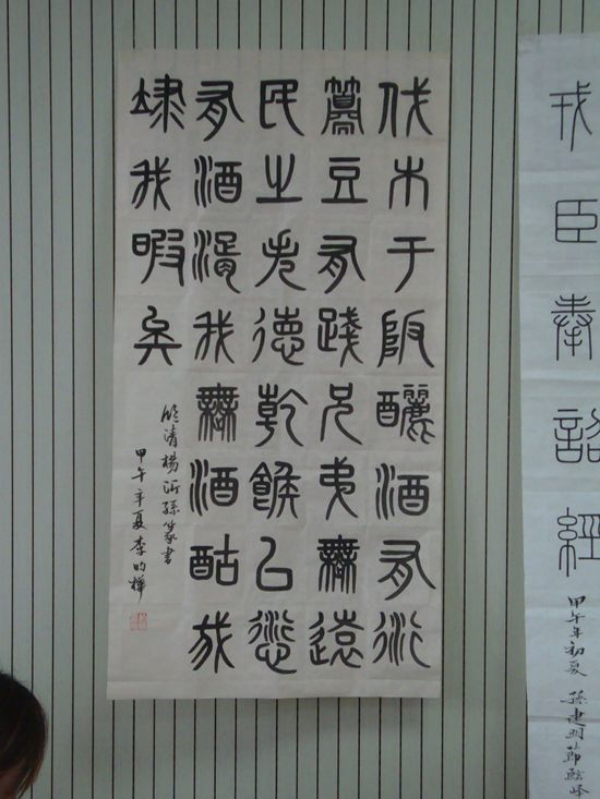 伐木于阪釃酒有衍
籩豆有踐兄弟無遠
民之失德乾餱以愆
有酒湑我無酒酤我
埭我暇矣
臨清楊沂孫篆書
甲午年夏李昀樺
戎臣奉詔經
甲午年初夏孫建明節臨嶧